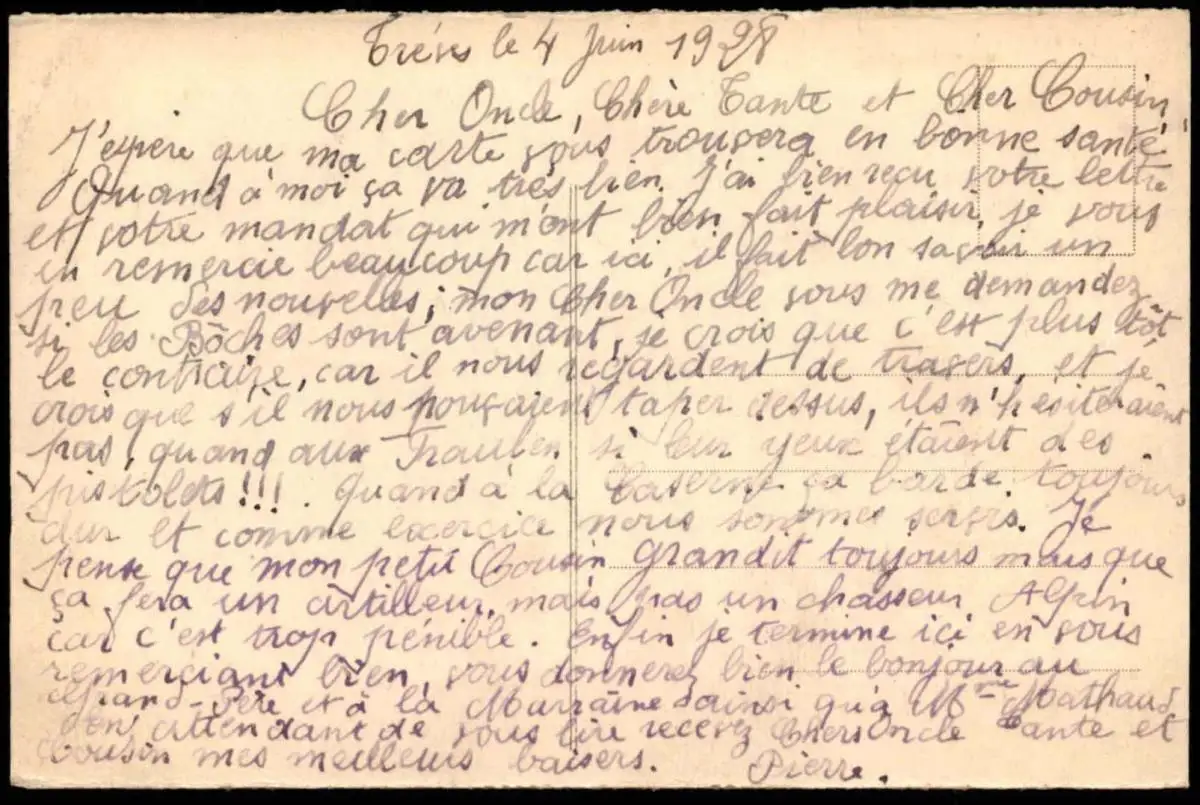 Trèves le 4 Juin 1928
Cher Oncle, Chère Tante et Cher Cousin,
J'espère que ma carte vous trouvera en bonne santé
Quand à moi ça va très bien. J'ai bien reçu votre lettre
et votre mandat qui m'ont bien fait plaisir, je vous
en remercie beaucoup car ici, il fait bon savoir un
peu des nouvelles; mon Cher Oncle vous me demandez
si les Bôches sont avenant, je crois que c'est plus tôt
le contraire, car il nous regardent de travers, et je
crois que s'il nous pouvaient taper dessus, ils n'hésiteraient
pas, quand aux Fraulen si leur yeux étaient des
pistolets!!! Quand à la Caserne ça barde toujours
dur et comme exercice nous sommes servis. Je
pense que mon petit Cousin grandit toujours mais que
ça fera un artilleur, mais pas un chasseur Alpin
car c'est trop pénible. Enfin je termine ici en vous
remerciant bien, vous donnerez bien le bonjour au
Grand-Père et à la Marraine ainsi qu'à Mme Mathaud
en attendant de vous lire recevez Chers Oncle Tante et
Cousin mes meilleurs baisers. Pierre.